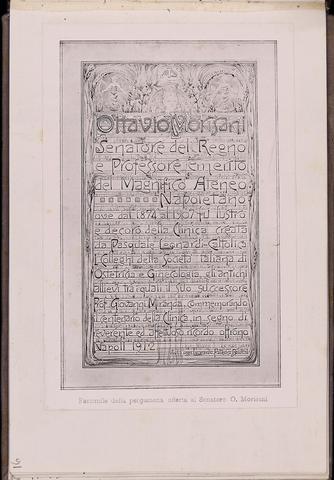 Ottavio Morisani
Senatore del Regno
e Professore emerito
del Magnifico Ateneo
Napoletano
ove dal 1874 al 1907 fu lustro
e decoro della Clinica creata
da Pasquale Leonardi-Cattolica
I Colleghi della Società Italiana di
Ostetricia e Ginecologia, gli antichi
allievi tra quali il suo successore
Prof. Giovanni Miranda, commemorando
il centenario della Clinica, in segno di
reverente ed affettuoso ricordo offrono
Napoli 1912
Facsimile della pergamena offerta al Senatore O. Morisani
5